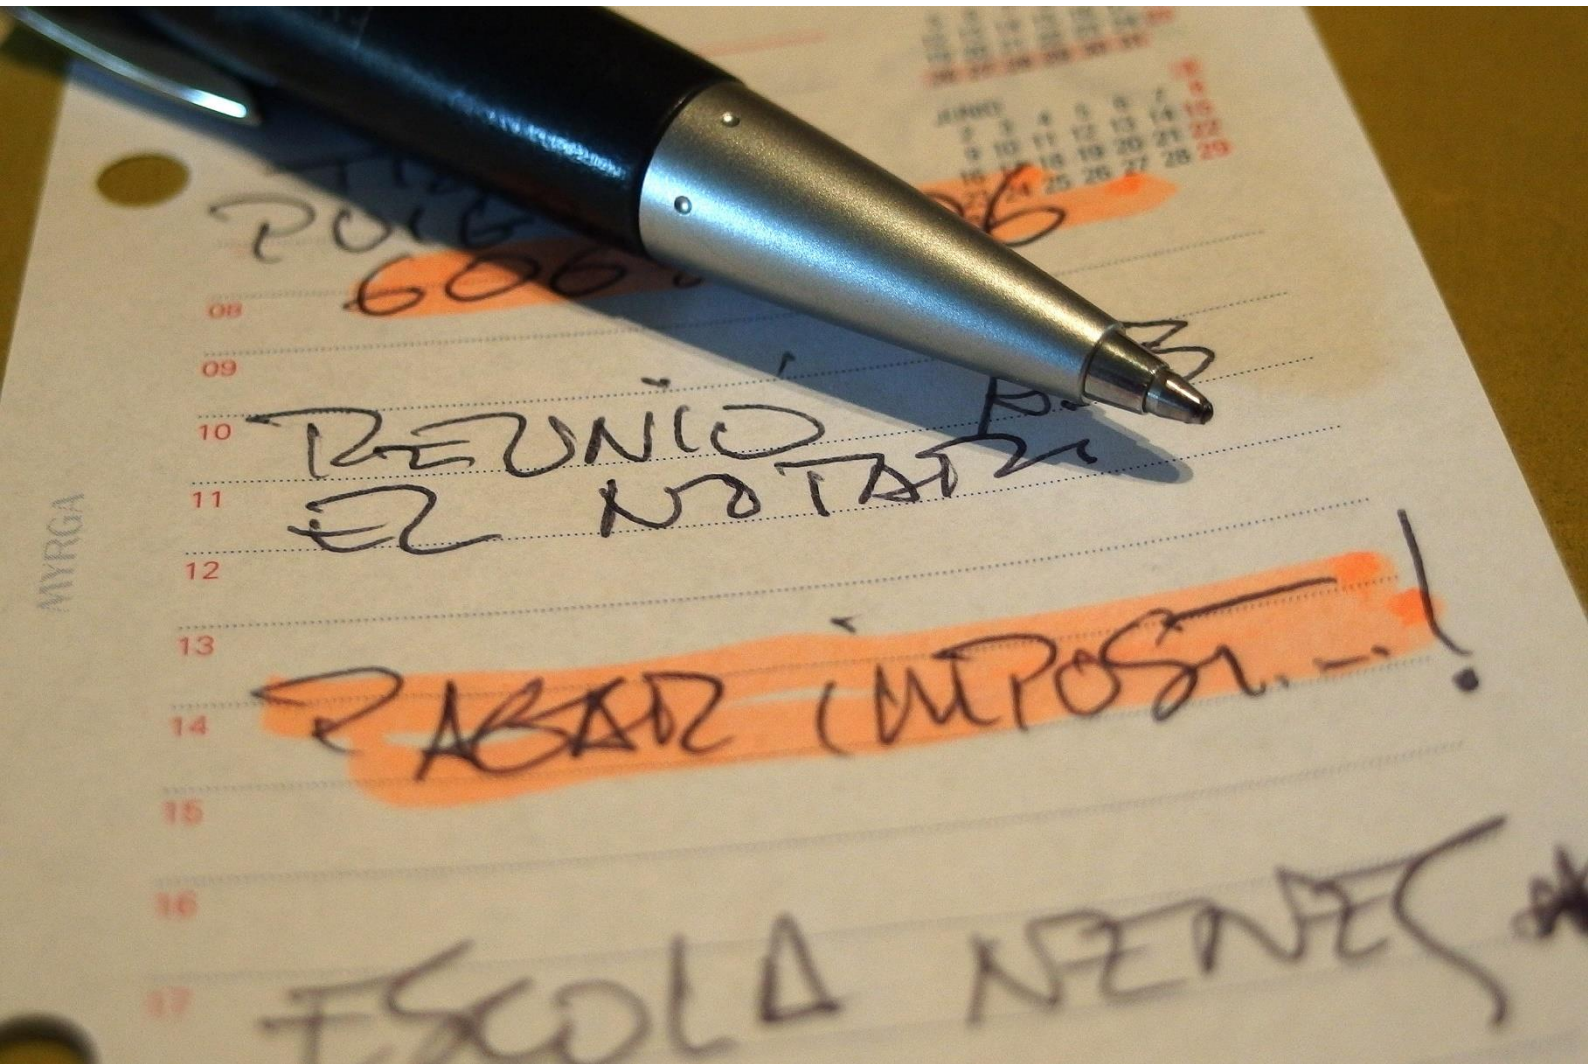 JUNIO
2 3 4 5 6 7
9 10 11 12 13 14 15
16 18 19 20 21 22
23 24 25 26 27 28 29
PUIG
606
08
09
10 REUNIÓ
11 EL NOTARI
12
13
14 PAGAR IMPOST...!
15
16
17 ESCOLA NENES *
MYRGA